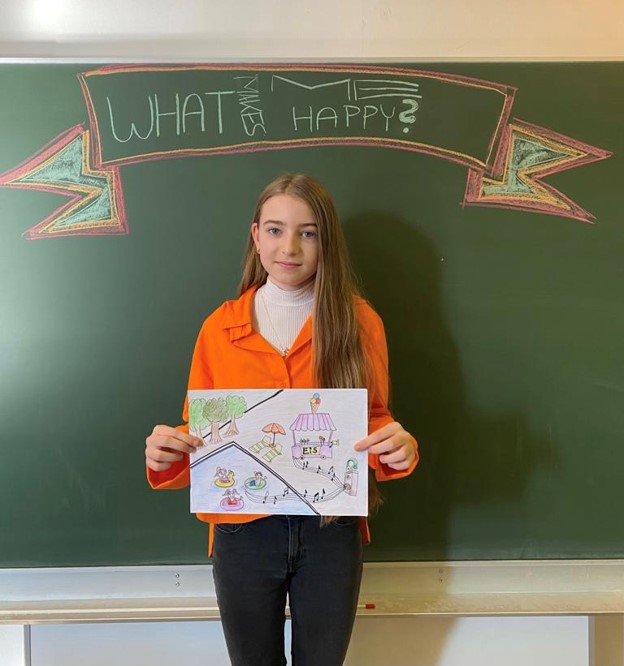 WHAT MAKES ME HAPPY?
EIS